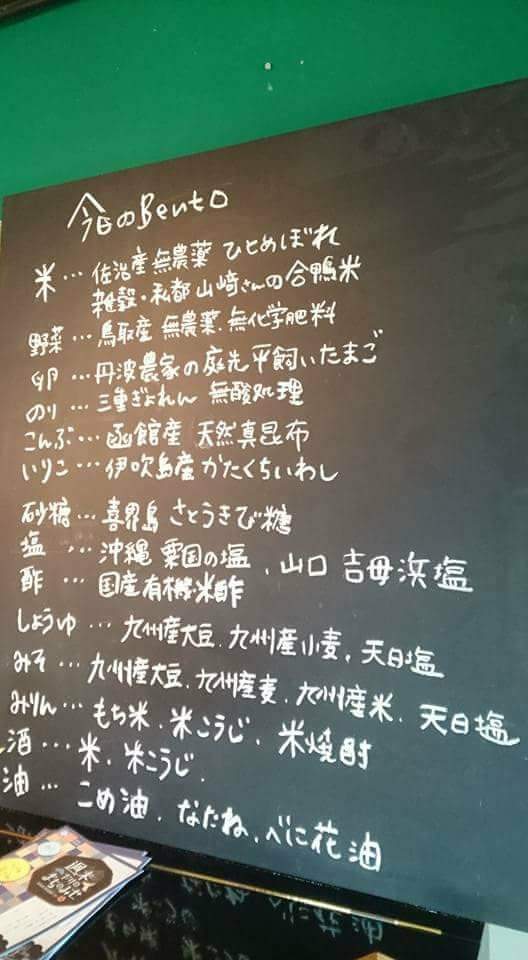 今日のBento
米…佐治産 無農薬 ひとめぼれ
雑穀・私都 山崎さんの合鴨米
野菜…鳥取産 無農薬.無化学肥料
卵…丹波農家の庭先平飼いたまご
のり…三重ぎょれん 無酸処理
こんぶ…函館産 天然真昆布
いりこ…伊吹島産かたくちいわし
砂糖…喜界島 さとうきび糖
塩…沖縄 粟国の塩、山口 吉母浜塩
酢…国産有機米酢
しょうゆ…九州産大豆.九州産小麦.天日塩
みそ…九州産大豆.九州産麦.九州産米.天日塩
みりん…もち米.米こうじ.米焼酎
酒…米.米こうじ.
油…こめ油.なたね.べに花油
週末